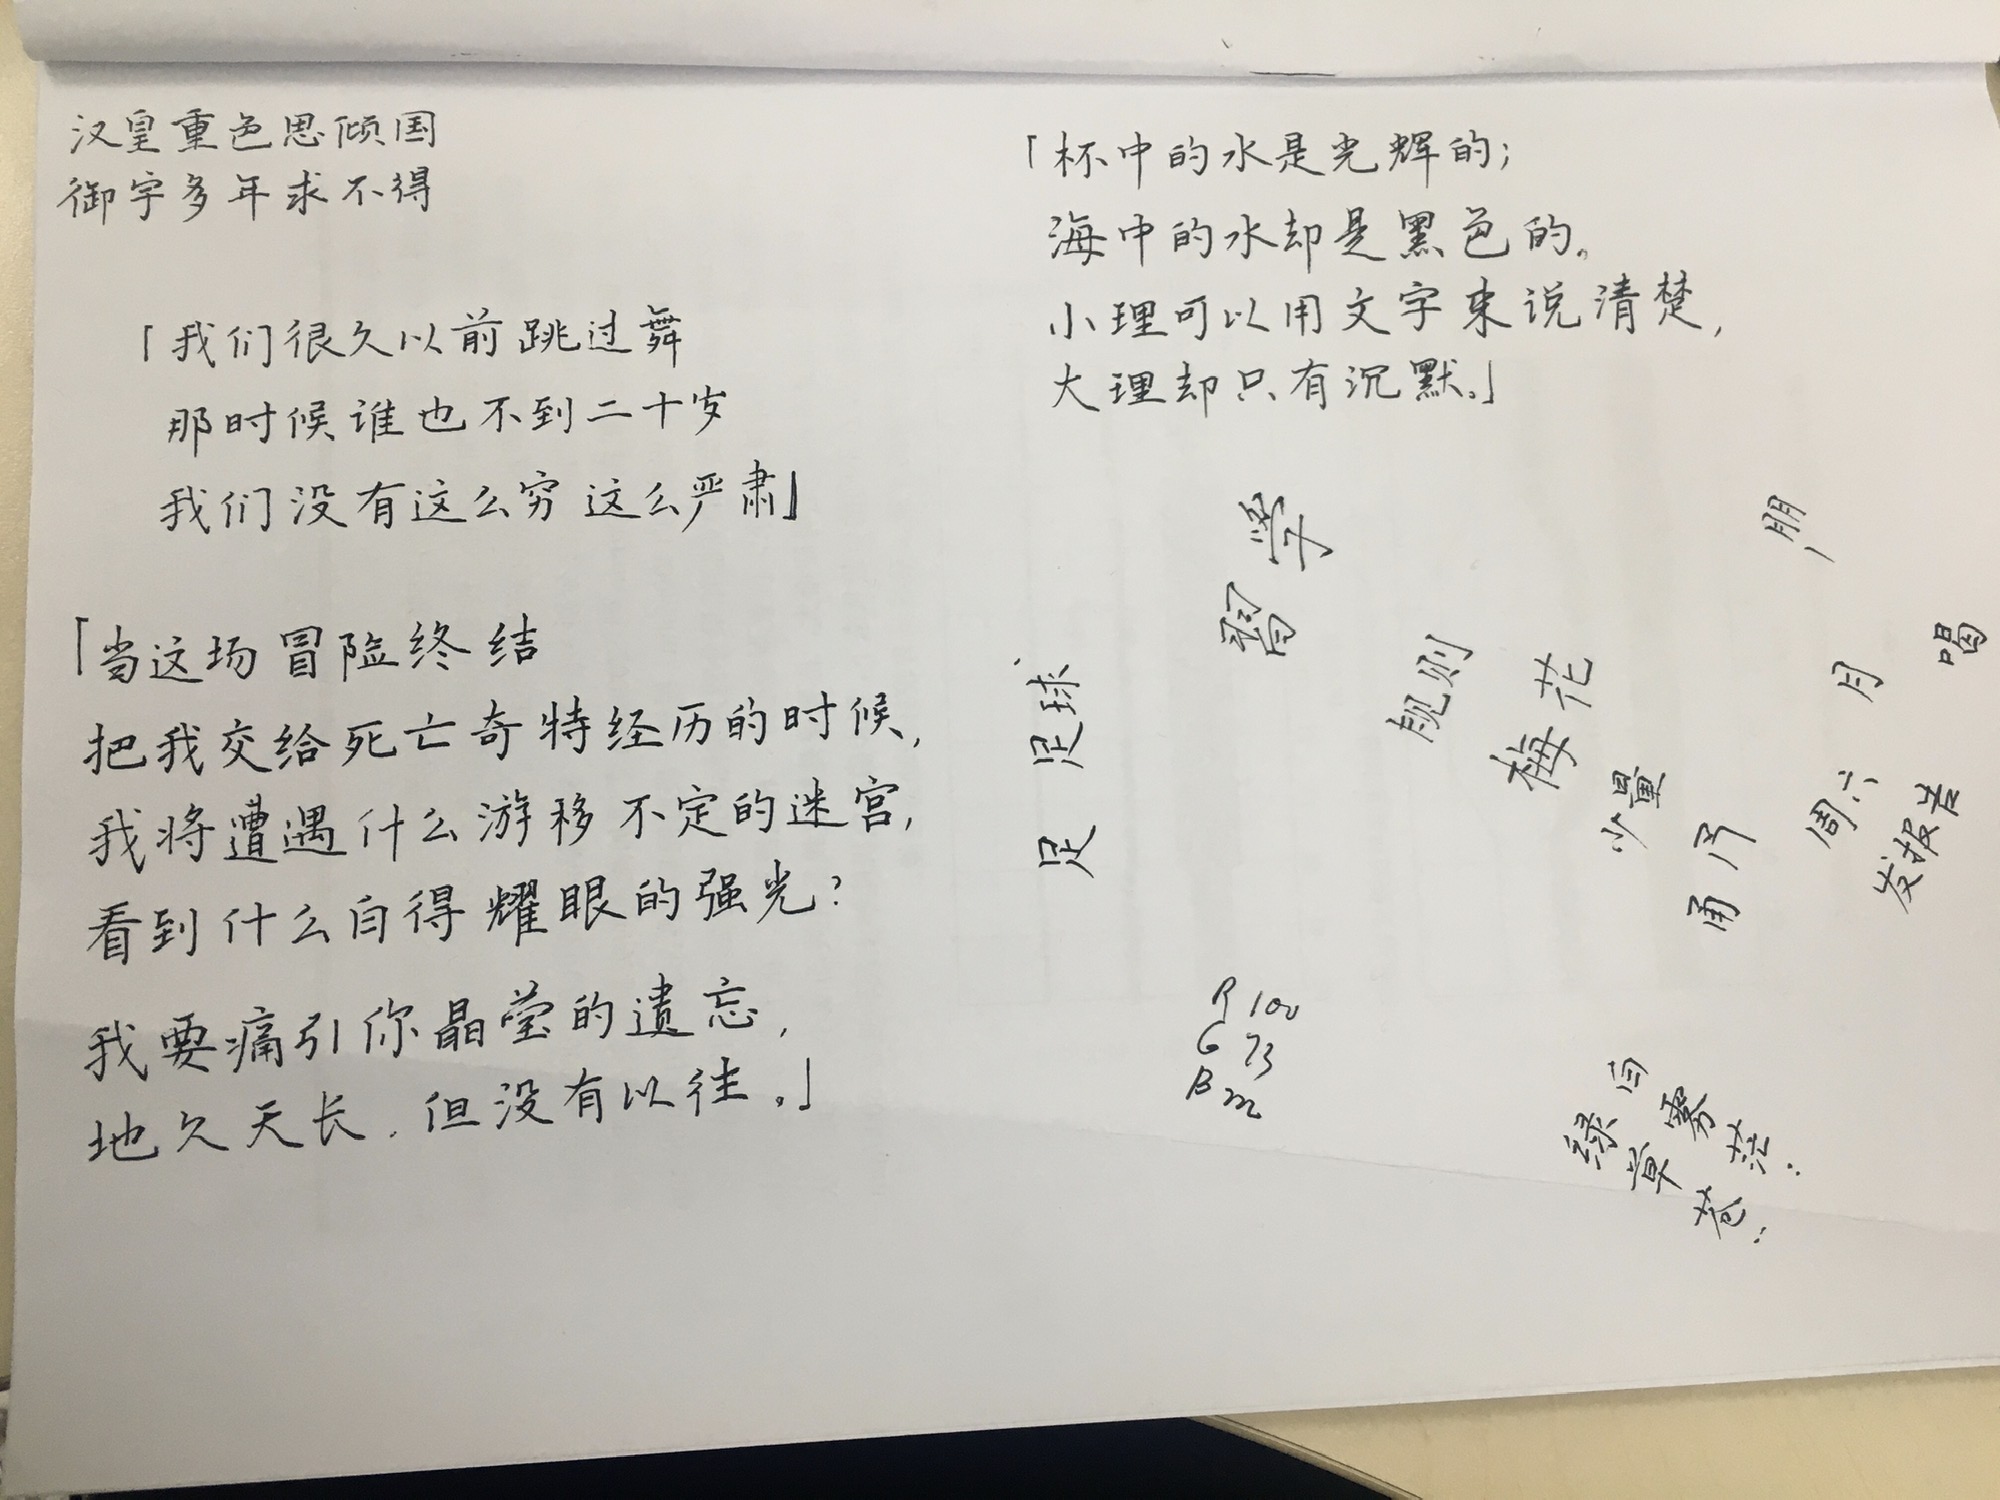 汉皇重色思倾国
御宇多年求不得
「我们很久以前跳过舞
那时候谁也不到二十岁
我们没有这么穷 这么严肃」
「当这场冒险终结
把我交给死亡奇特经历的时候,
我将遭遇什么游移不定的迷宫,
看到什么自得耀眼的强光?
我要痛引你晶莹的遗忘,
地久天长,但没有以往。」
「杯中的水是光辉的;
海中的水却是黑色的。
小理可以用文字来说清楚,
大理却只有沉默。」
足 足球
習學
规则
梅花
少量
甬 予
朋
月
喝
周六
发报告
R 100
G 73
B m
白雾茫:
绿草苍: